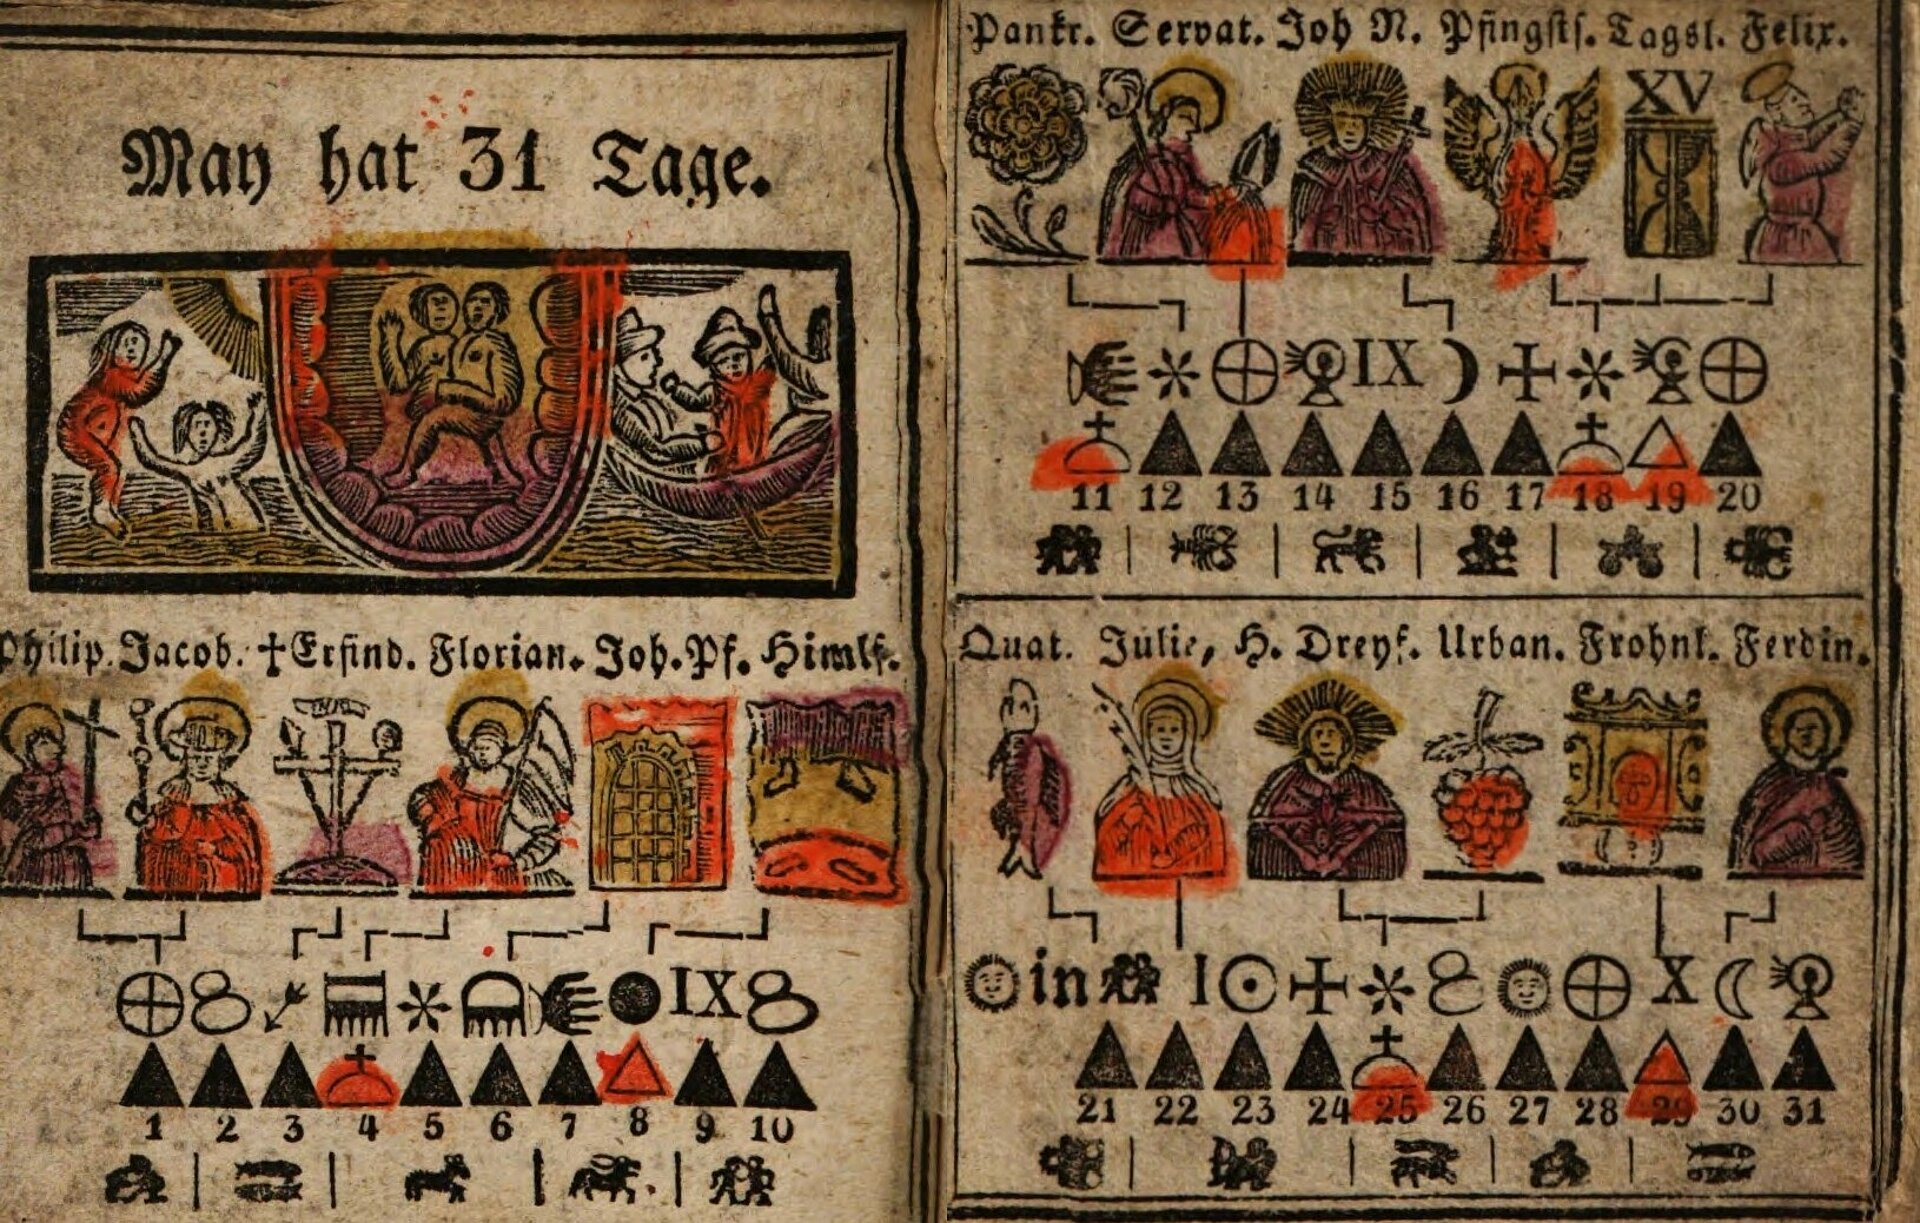 May hat 31 Tage.
Philip. Jacob. †Erfind. Florian. Joh. Pf. Himlf.
IX
1 2 3 4 5 6 7 8 9 10
Pankr. Servat. Joh N. Pfingsts. Tagsl. Felix.
XV
IX
11 12 13 14 15 16 17 18 19 20
Quat. Julie, H. Dreyf. Urban. Frohnl. Ferdin.
in I X
21 22 23 24 25 26 27 28 29 30 31